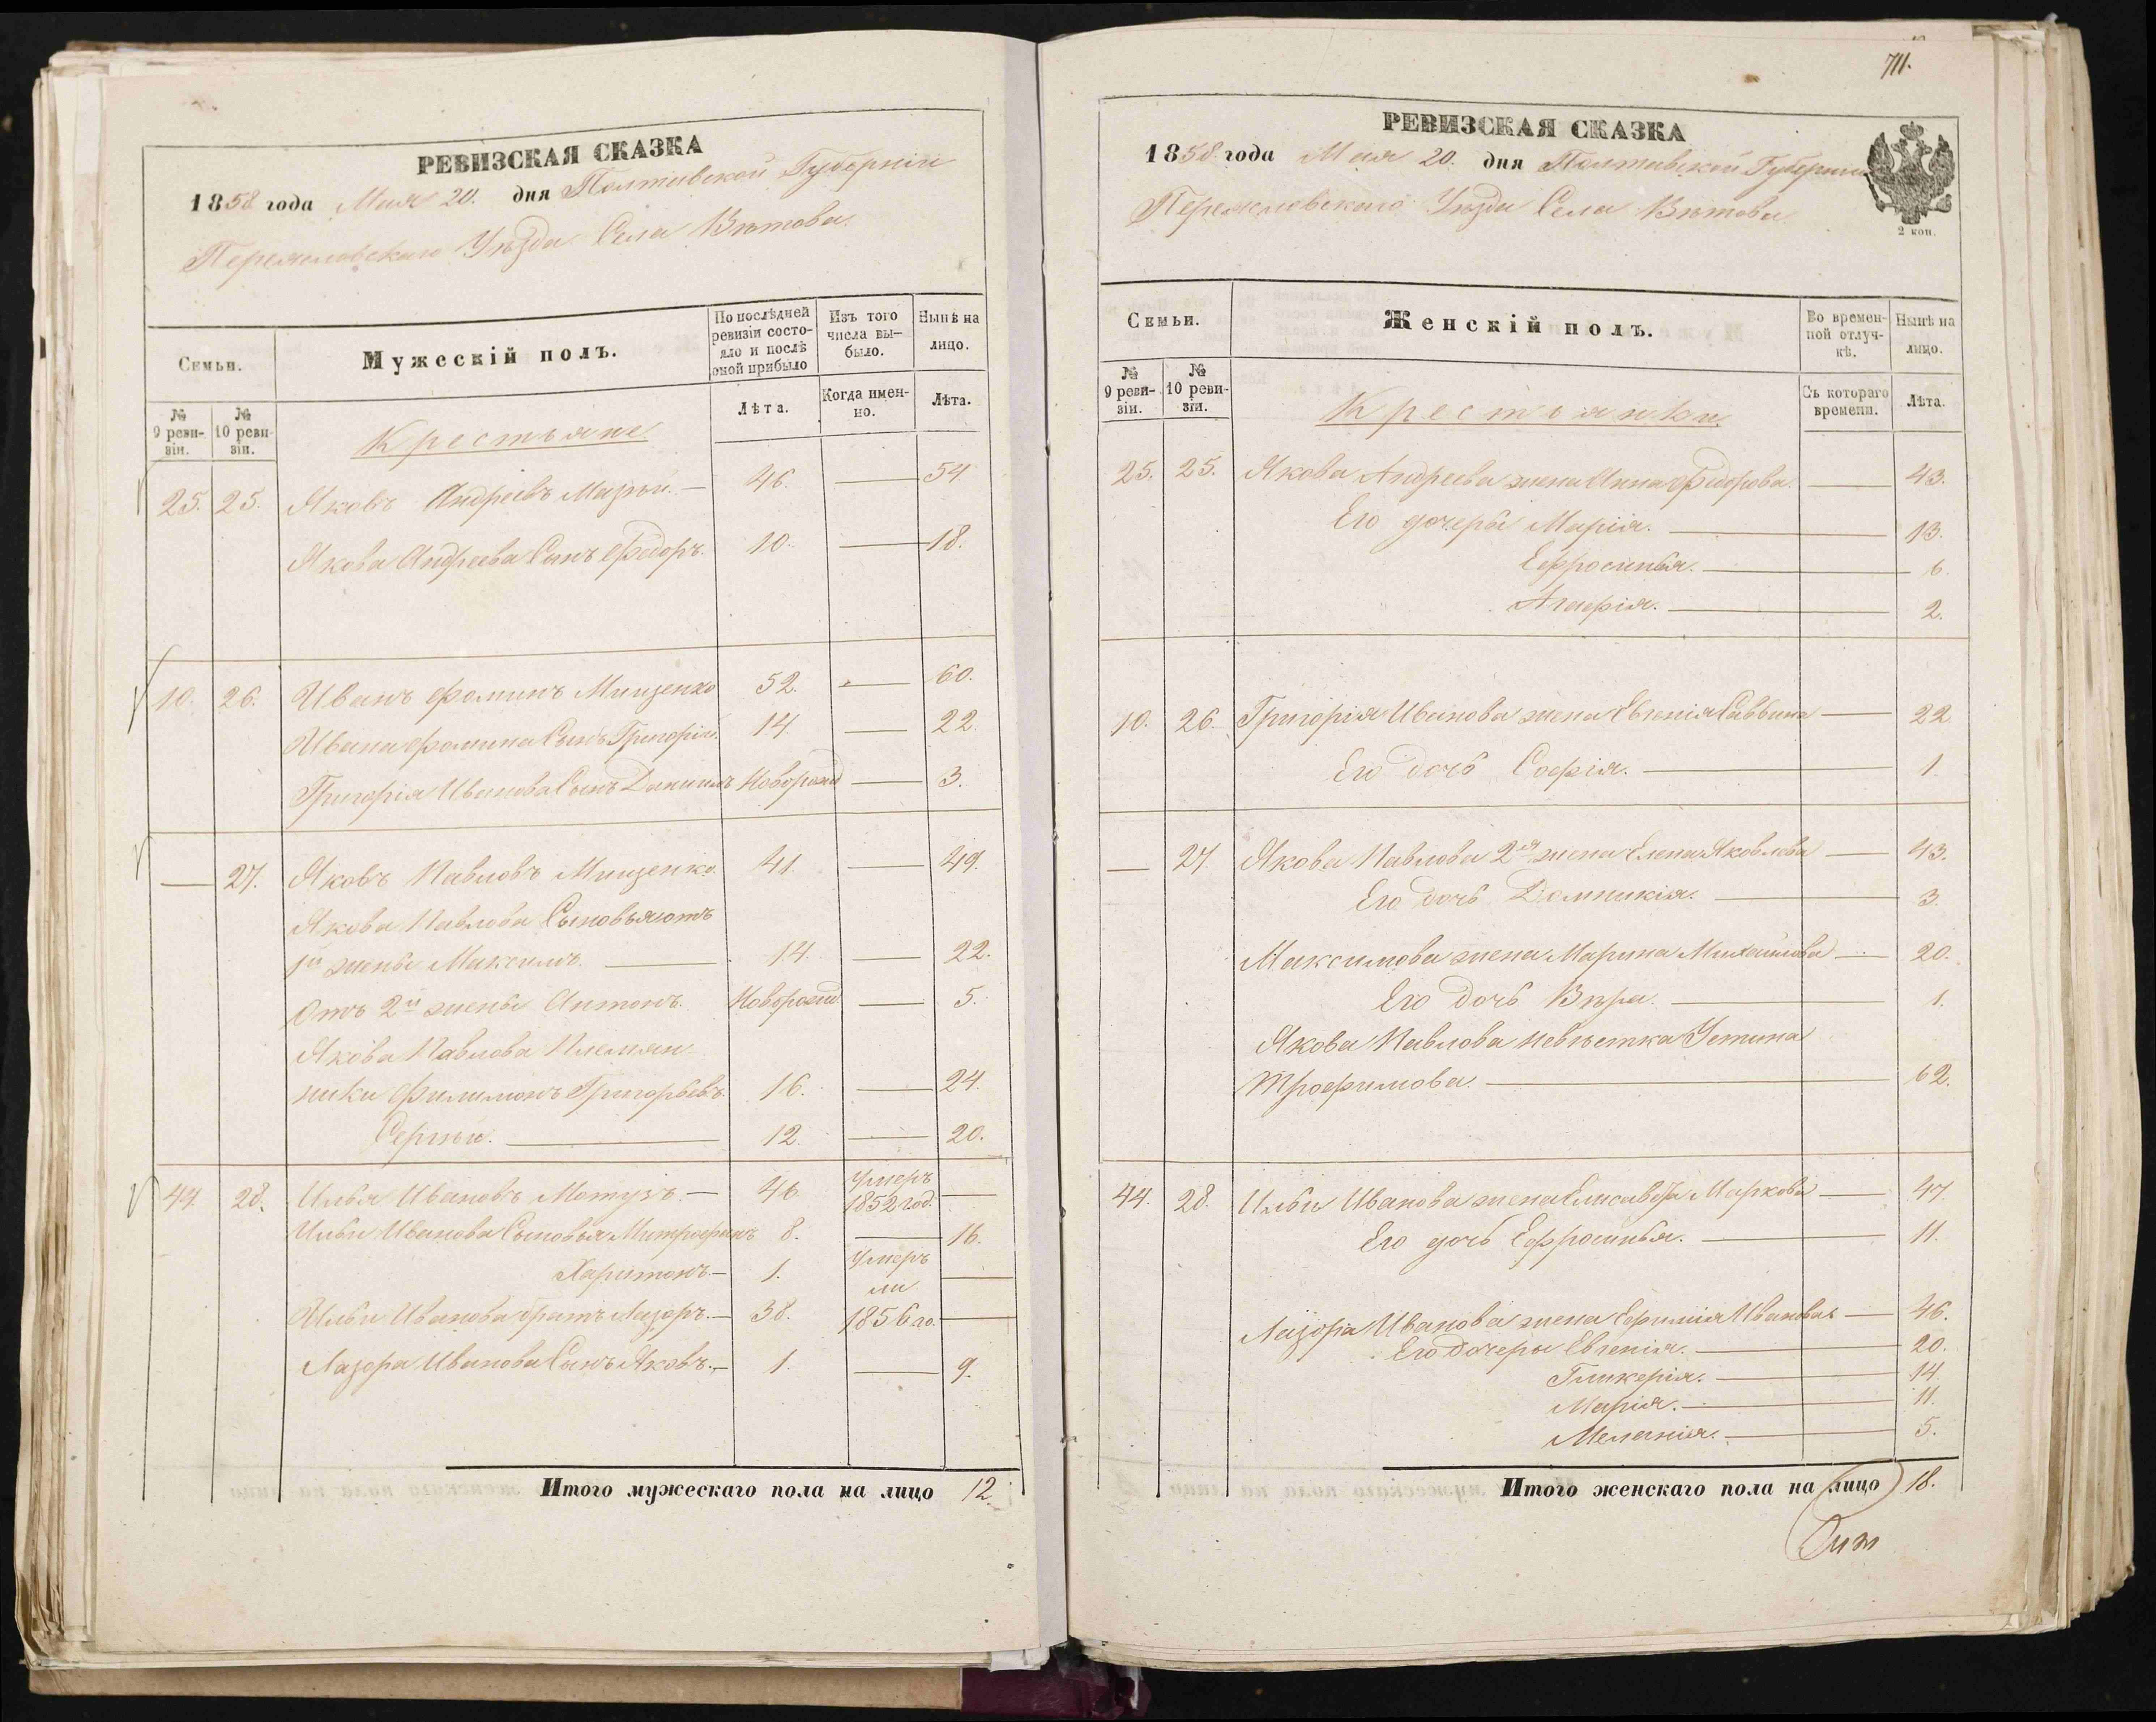 РЕВИЗСКАЯ СКАЗКА
1858 года Мая 20. дня Полтавской Губерніи
Переяславскаго Уѣзда Села Вьтова.
Семьи.
Мужескій полъ.
По послѣдней ревизіи состояло и послѣ оной прибыло
Изъ того числа выбыло.
Нынѣ на лицо.
№ 9 ревизіи.
№ 10 ревизіи.
Лѣта.
Когда именно.
Лѣта.
Крестьяне
25. 25. Яковъ Андреевъ Мазъй. — 46. — 54
Якова Андреева Сынъ Федоръ. 10. — 18.
10. 26. Иванъ Фоминъ Мищенко 52. — 60.
Ивана Фомина Сынъ Григорій. 14. — 22.
Григорія Иванова Сынъ Даниилъ Новорожд — 3.
— 27. Яковъ Павловъ Мищенко. 41. — 49.
Якова Павлова Сыновья отъ
1й жены Максимъ. — 14. — 22.
Отъ 2й жены Антонъ. Новорожд — 5.
Якова Павлова Племян
ники Филимонъ Григорьевъ. 16. — 24.
Сергѣй. — 12. — 20.
44. 28. Илья Ивановъ Мотузъ. — 46 Умеръ 1852 год. —
Ильи Иванова Сыновья Митрофанъ 8. — 16.
Харитонъ. — 1. Умеръ —
ли
Ильи Иванова братъ Лазоръ. — 38. 1856 го. —
Лазора Иванова Сынъ Яковъ. — 1. — 9.
Итого мужескаго пола на лицо 12
711.
РЕВИЗСКАЯ СКАЗКА
1858 года Мая 20. дня Полтавской Губерніи
Переяславскаго Уѣзда Села Вьтова
2 коп.
Семьи.
Женскій полъ.
Во временной отлучкѣ.
Нынѣ на лицо.
№ 9 ревизіи.
№ 10 ревизіи.
Съ котораго времени.
Лѣта.
Крестьянки.
25. 25. Якова Андреева жена Анна Федорова. — 43.
Его дочери Марія. — 13.
Ефросинья. — 6.
Агафія. — 2.
10. 26. Григорія Иванова жена Евгенія Саввина — 22
Его дочь Софія. — 1.
— 27. Якова Павлова 2я жена Елена Яковлева — 43.
Его дочь Домникія. — 3.
Максимова жена Марина Михайлова — 20.
Его дочь Вѣра. — 1.
Якова Павлова невѣстка Устина
Трофимова. — 62.
44. 28. Ильи Иванова жена Елисавета Маркова — 47.
Его дочь Ефросинья. — 11.
Лазора Иванова жена Ефимія Иванова — 46.
Его дочери Евгенія. — 20.
Гликерія. — 14.
Марія. — 11.
Меланія. — 5.
Итого женскаго пола на лицо 18.